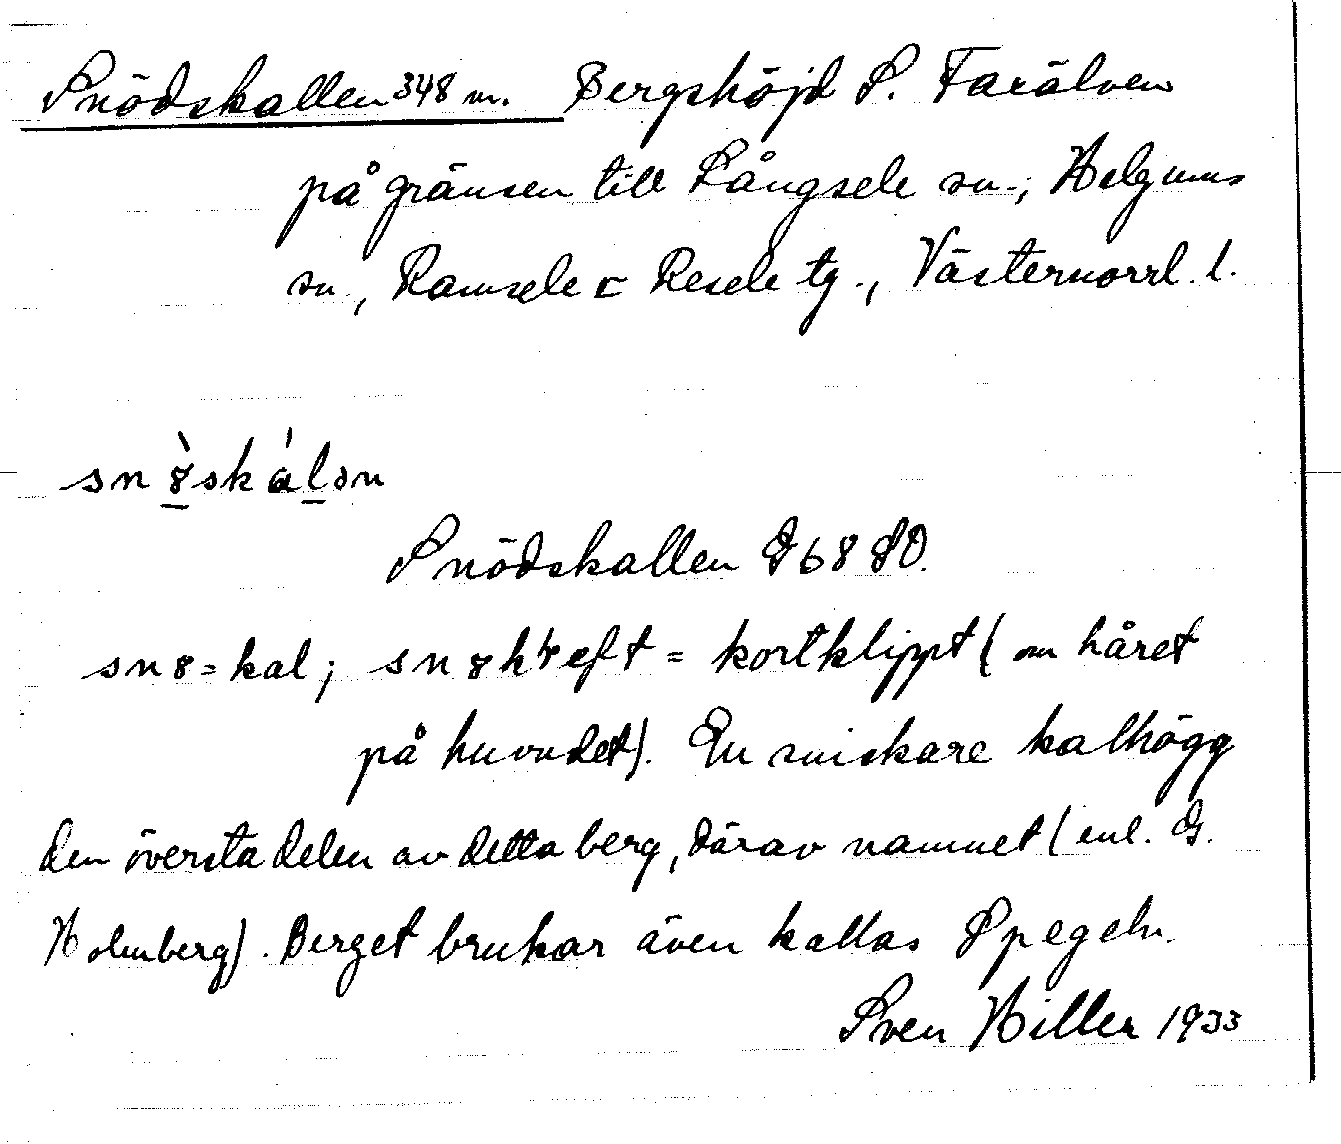 Snödskallen 348 m. Bergshöjd S. Faxälven
på gränsen till Långsele sn., Helgums
sn., Ramsele o Resele tg., Västernorrl. l.
snö̀skálən
Snödskallen G68 SO.
snö = kal; snökləft = kortklippt (om håret
på huvudet). En snickare kalhögg
den översta delen av detta berg, därav namnet (enl. G.
Holmberg). Berget brukar även kallas Spegeln.
Sven Hiller 1933